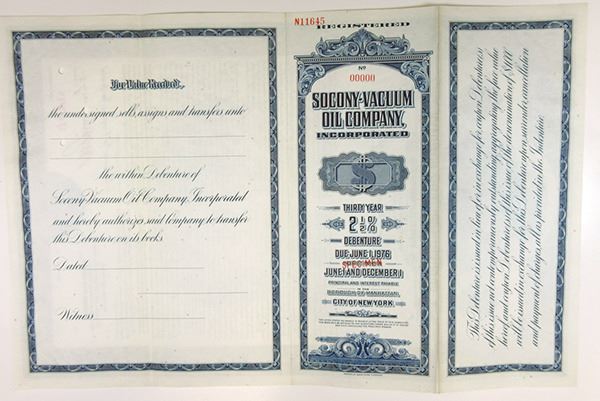 For Value Received,
the undersigned sells, assigns and transfers unto
the within Debenture of
Socony-Vacuum Oil Company, Incorporated
and hereby authorizes said Company to transfer
this Debenture on its books.
Dated
Witness
N11645
REGISTERED
No
00000
SOCONY-VACUUM
OIL COMPANY,
INCORPORATED
$
THIRTY YEAR
2 1/2 %
DEBENTURE
DUE JUNE 1, 1976
SPECIMEN
JUNE 1 AND DECEMBER 1
PRINCIPAL AND INTEREST PAYABLE
IN THE
BOROUGH OF MANHATTAN,
CITY OF NEW YORK
This Debenture is issued in lieu of or in exchange for a coupon Debenture
of this issue
not contemporaneously outstanding aggregating the face value
hereof; and coupon Debentures of this issue of the denomination of $1,000
will be issued in exchange for this Debenture upon surrender and cancellation
and upon payment of charges, all as provided in the Indenture.